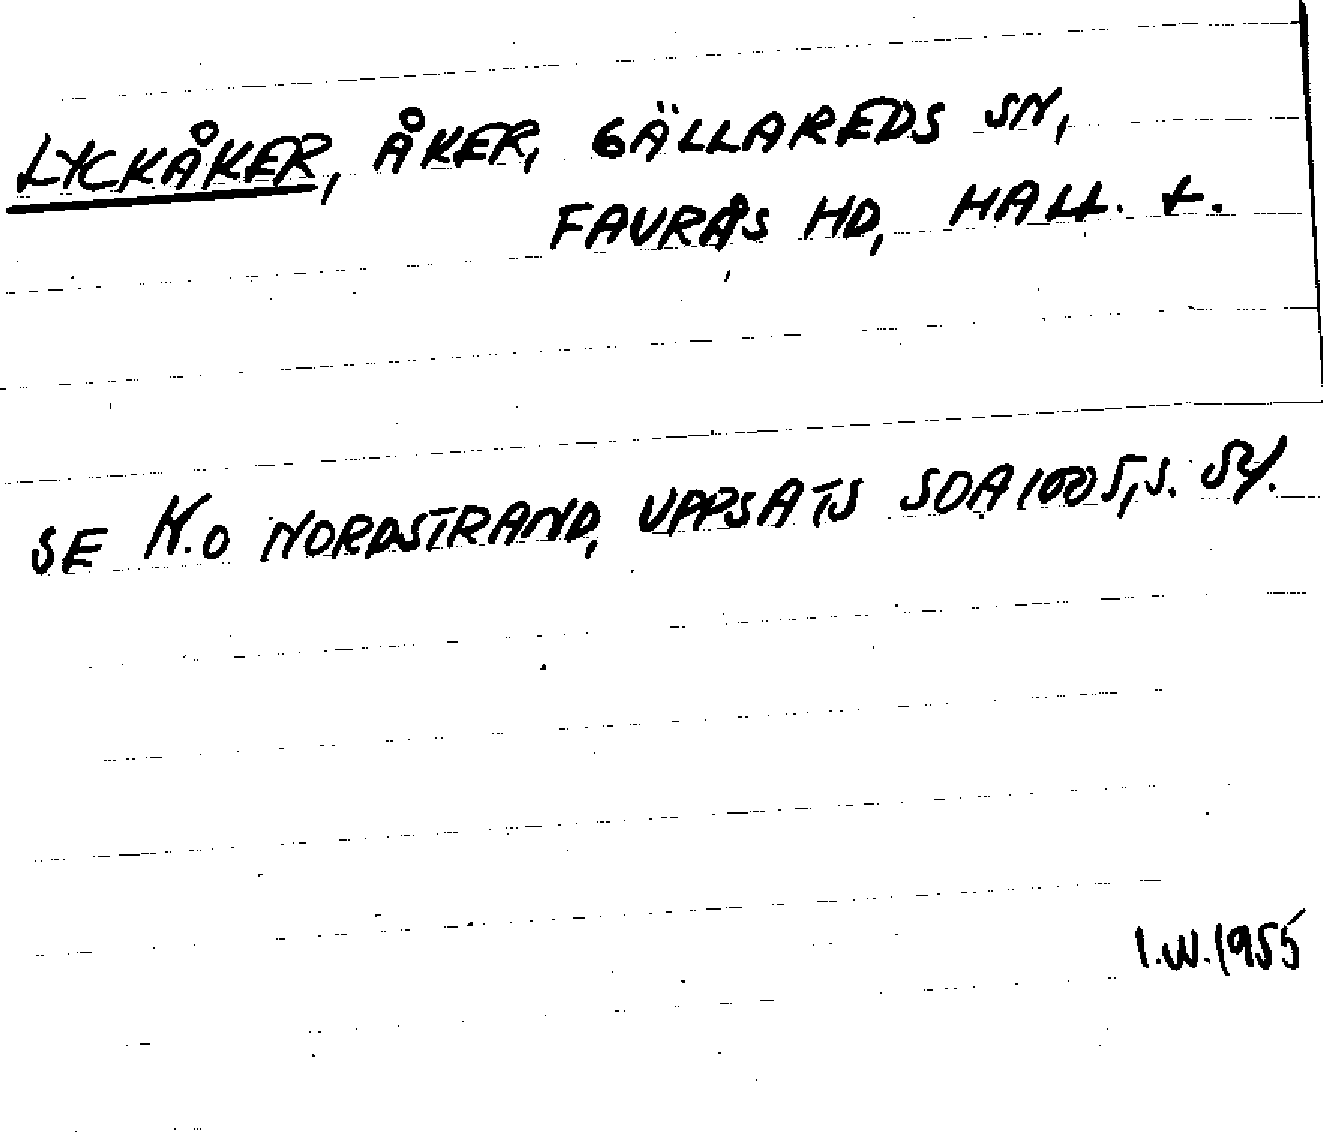 LYCKÅKER, ÅKER, GÄLLAREDS SN,
FAURÅS HD, HALL. L.
SE K.O NORDSTRAND, UPPSATS SOA 1005, S. 54.
I.W. 1955